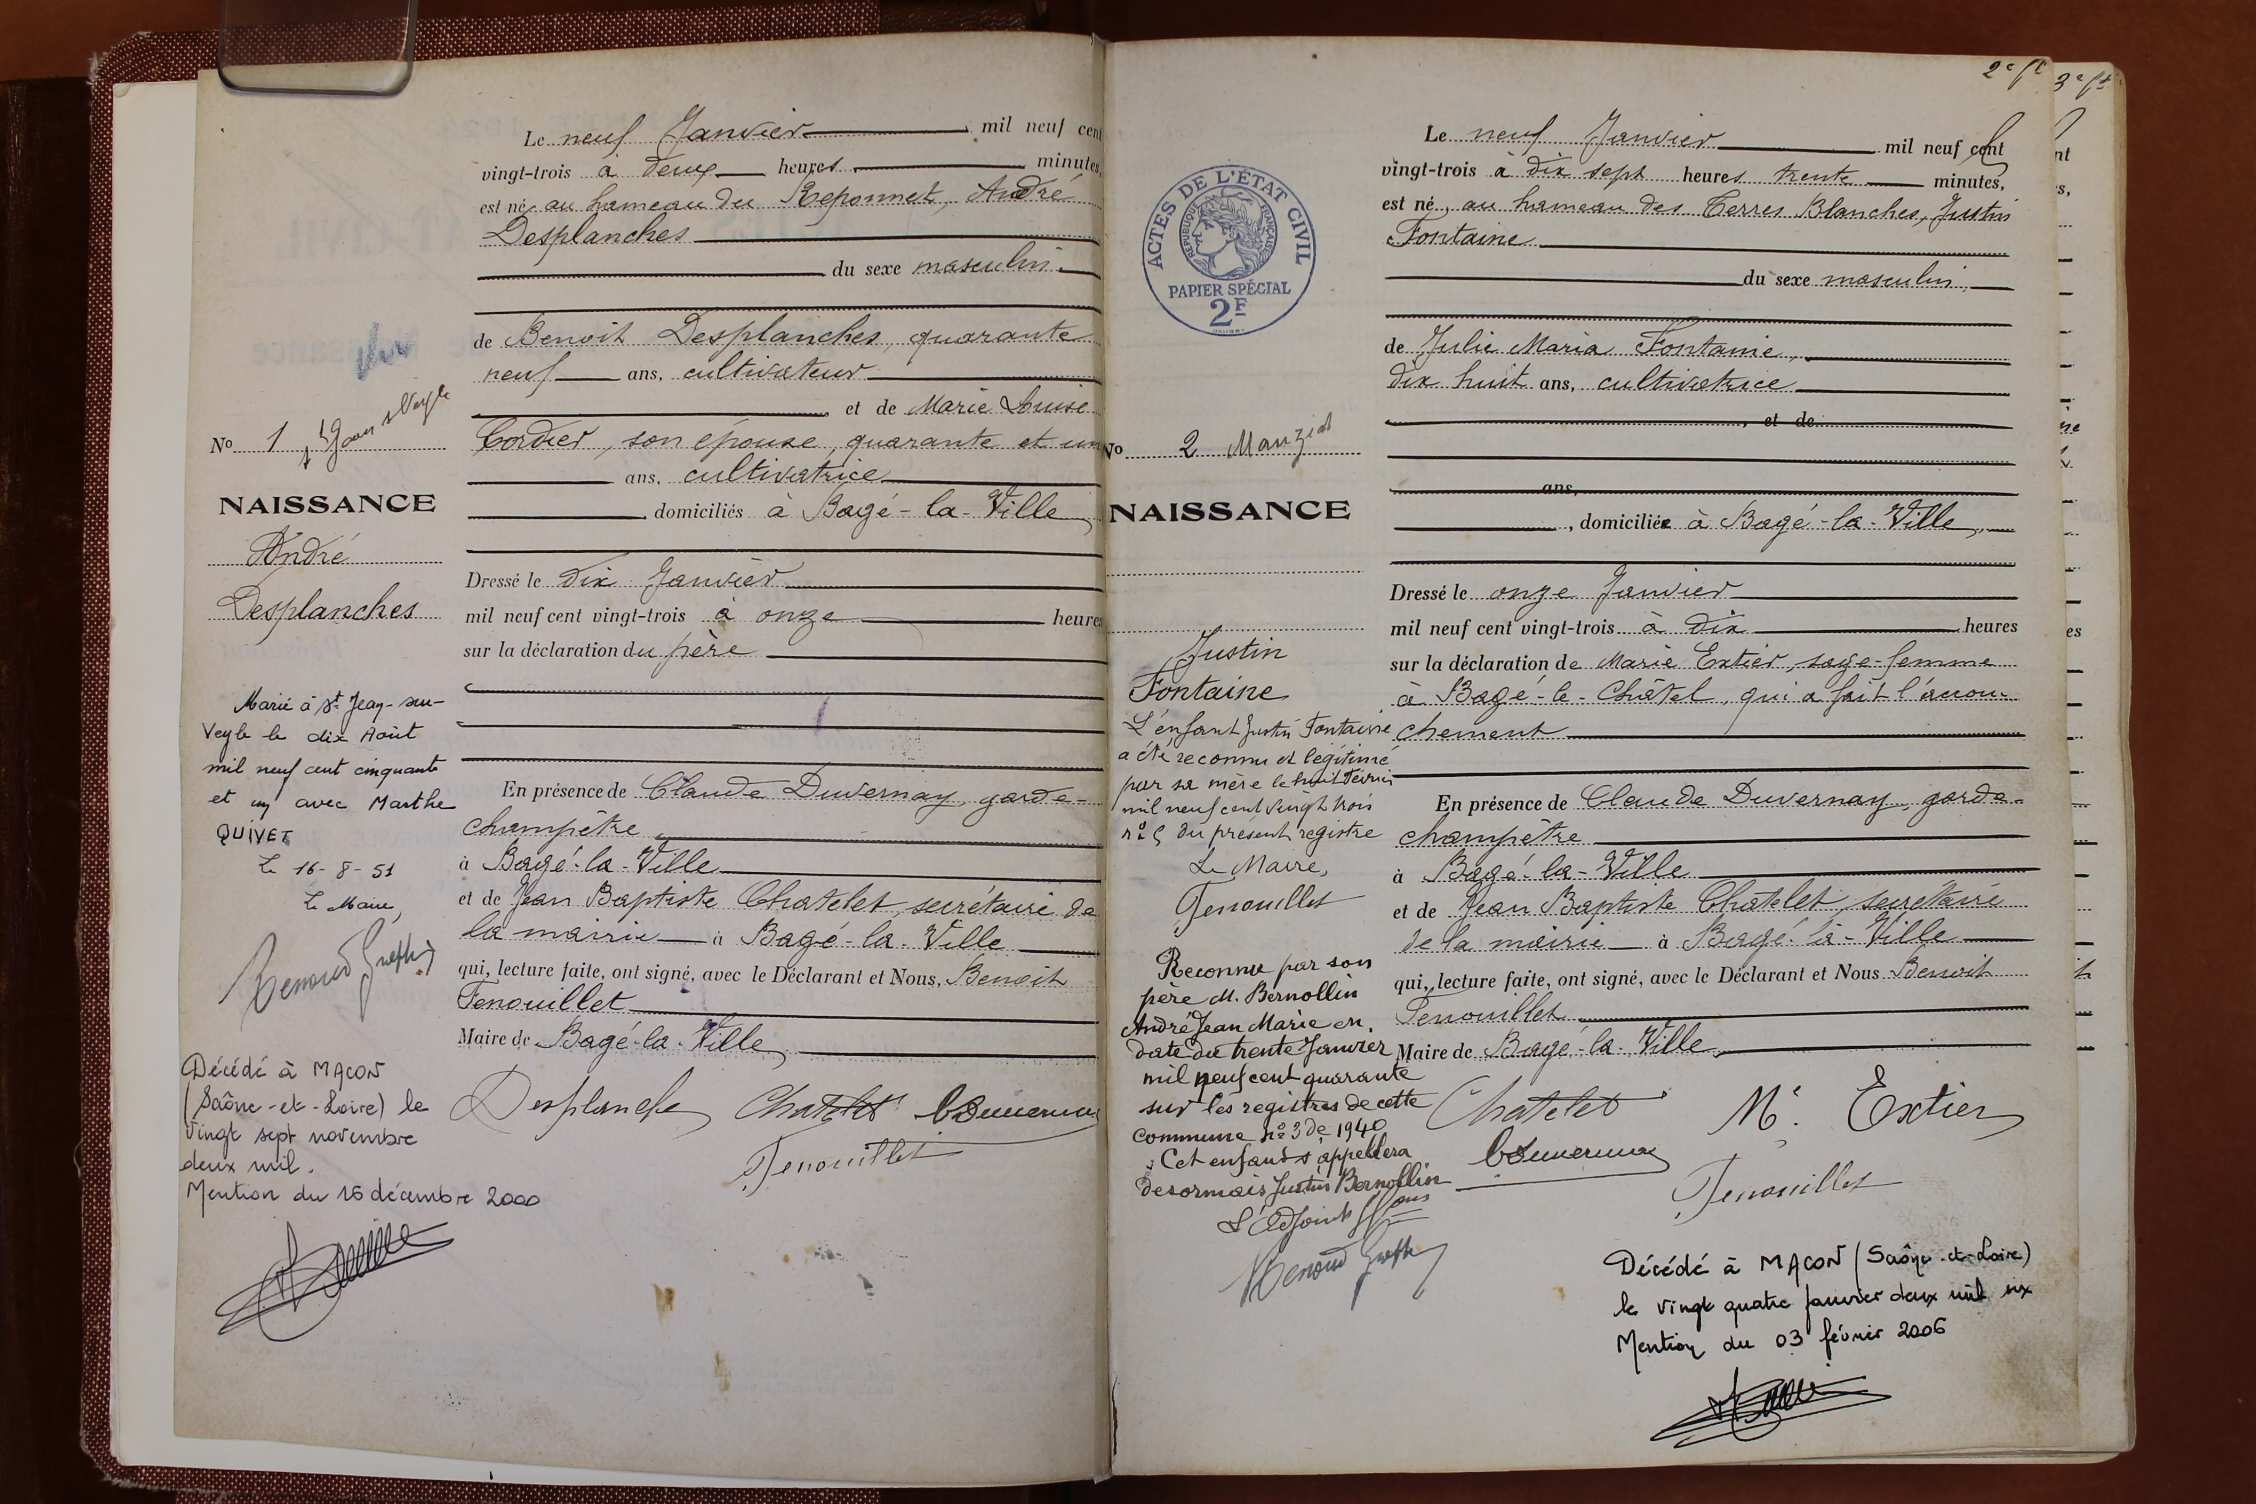 Le neuf Janvier mil neuf cent
vingt-trois à deux heures minutes,
est né au hameau du Reponnet, André
Desplanches
du sexe masculin
de Benoit Desplanches, quarante
neuf ans, cultivateur
et de Marie Louise
Cordier, son épouse, quarante et un
ans, cultivatrice
domiciliés à Bagé-la-Ville,
Dressé le dix Janvier
mil neuf cent vingt-trois à onze heures
sur la déclaration du père
En présence de Claude Duvernay, garde-
champêtre
à Bagé-la-Ville
et de Jean Baptiste Chatelet, secrétaire de
la mairie à Bagé-la-Ville
qui, lecture faite, ont signé, avec le Déclarant et Nous, Benoit
Fenouillet
Maire de Bagé-la-Ville,
Desplanche Chatelet
Fenouillet
No 1
NAISSANCE
André
Desplanches
Marié à St Jean-sur-
Veyle le dix Août
mil neuf cent cinquante
et un avec Marthe
QUIVET
Le 16-8-51
Le Maire,
Décédé à MACON
(Saône-et-Loire) le
vingt sept novembre
deux mil.
Mention du 16 décembre 2000
2e ft
3e ft
ACTES DE L'ÉTAT CIVIL
RÉPUBLIQUE FRANÇAISE
PAPIER SPÉCIAL
2F
Le neuf Janvier mil neuf cent
vingt-trois à dix sept heures trente minutes,
est né, au hameau des Terres Blanches, Justin
Fontaine
du sexe masculin,
de Julie Maria Fontaine,
dix huit ans, cultivatrice
, et de
ans,
, domiciliée à Bagé-la-Ville,
Dressé le onze Janvier
mil neuf cent vingt-trois à dix heures
sur la déclaration de Marie Extier, sage-femme
à Bagé-le-Châtel, qui a fait l'accou-
chement
En présence de Claude Duvernay, garde-
champêtre
à Bagé-la-Ville
et de Jean Baptiste Chatelet, secrétaire
de la mairie à Bagé-la-Ville
qui, lecture faite, ont signé, avec le Déclarant et Nous Benoit
Fenouillet
Maire de Bagé-la-Ville,
Chatelet Me Extier
Fenouillet
No 2 Manziat
NAISSANCE
Justin
Fontaine
L'enfant Justin Fontaine
a été reconnu et légitimé
par sa mère le huit Février
mil neuf cent vingt trois
no 5 du présent registre
Le Maire,
Fenouillet
Reconnu par son
père M. Bernollin
André Jean Marie en
date du trente Janvier
mil neuf cent quarante
sur les registres de cette
commune no 3 de 1940
Cet enfant s'appellera
désormais Justin Bernollin
L'Adjoint
Décédé à MACON (Saône-et-Loire)
le vingt quatre janvier deux mil six
Mention du 03 février 2006